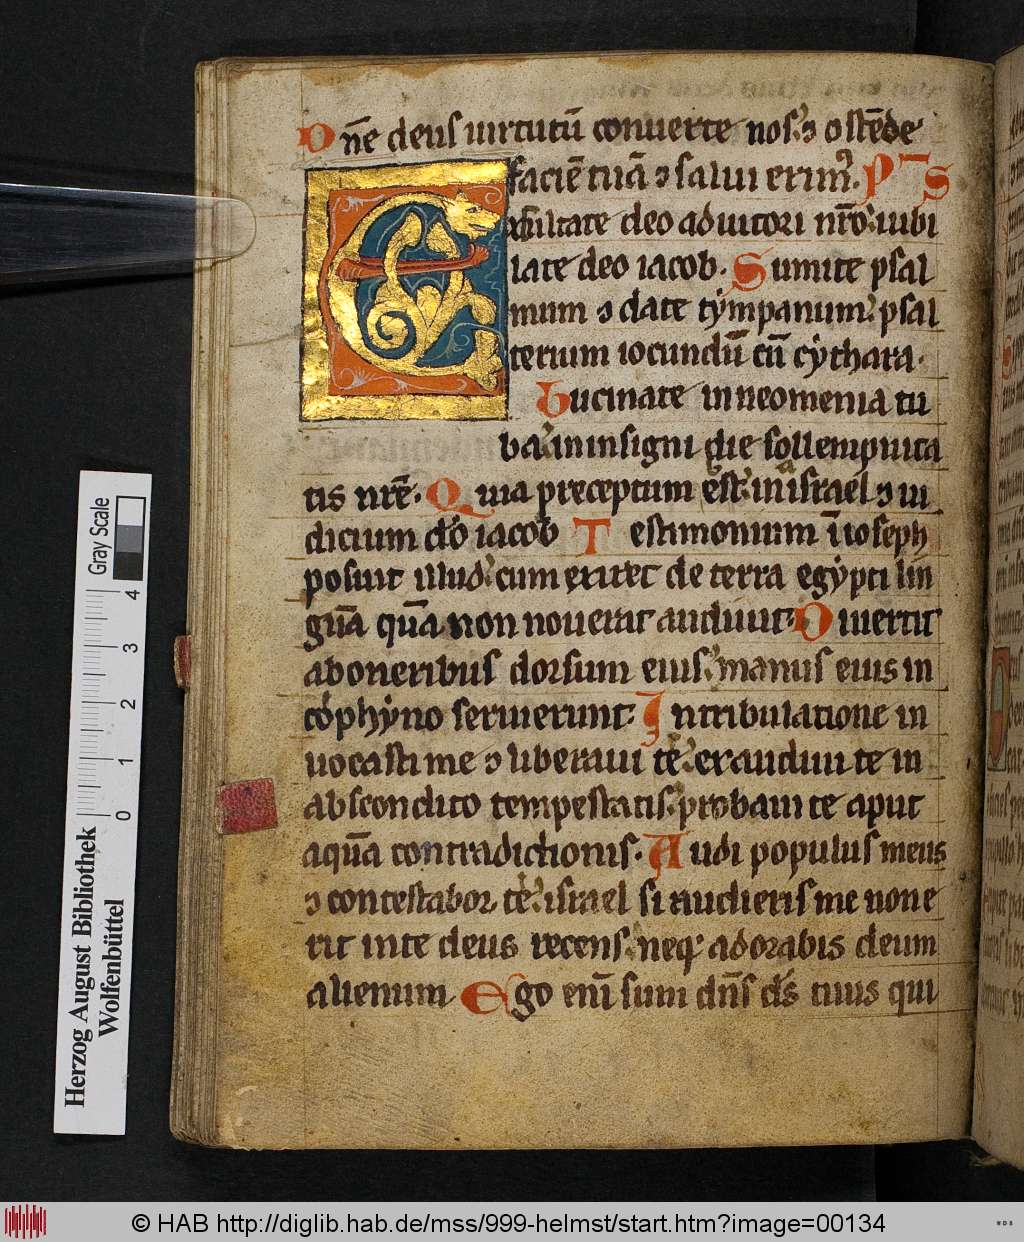 One deus uirtutū conuerte nos: ⁊ ostēde
faciē tuā ⁊ salui erim᷒. Ps
Exsultate deo adiutori nrō: iubi
late deo iacob. Sumite psal
mum ⁊ date tympanum: psal
terium iocundū cū cythara.
bucinate in neomenia tu
ba: in insigni die sollempnita
tis nrē. Quia preceptum est: in israel ⁊ iu
dicium dō iacob Testimonium ī ioseph
posuit illud: cum exiret de terra egypti lin
guā quā non nouerat audiuit. Diuertit
ab oneribus dorsum eius: manus eius in
cophyno seruierunt. In tribulatione in
uocasti me ⁊ liberaui te: exaudiui te in
abscondito tempestatis: probaui te aput
aquā contradictionis. Audi populus meus
⁊ contestabor te: israel si audieris me non e
rit in te deus recens: neq; adorabis deum
alienum Ego enī sum dn̄s ds̄ tuus qui
Gray Scale
4
3
2
1
0
Herzog August Bibliothek
Wolfenbüttel
© HAB http://diglib.hab.de/mss/999-helmst/start.htm?image=00134